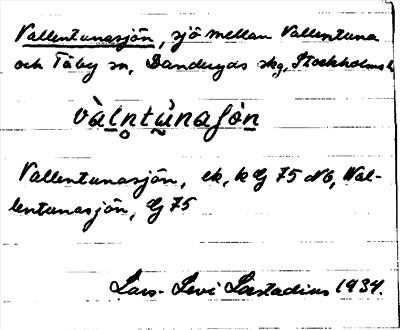 Vallentunasjön, sjö mellan Vallentuna
och Täby sn, Danderyds skg, Stockholms l.
Vallentunasjön, ek, k G 75 NO, Val-
lentunasjön, G 75
Lars-Levi Læstadius 1934.